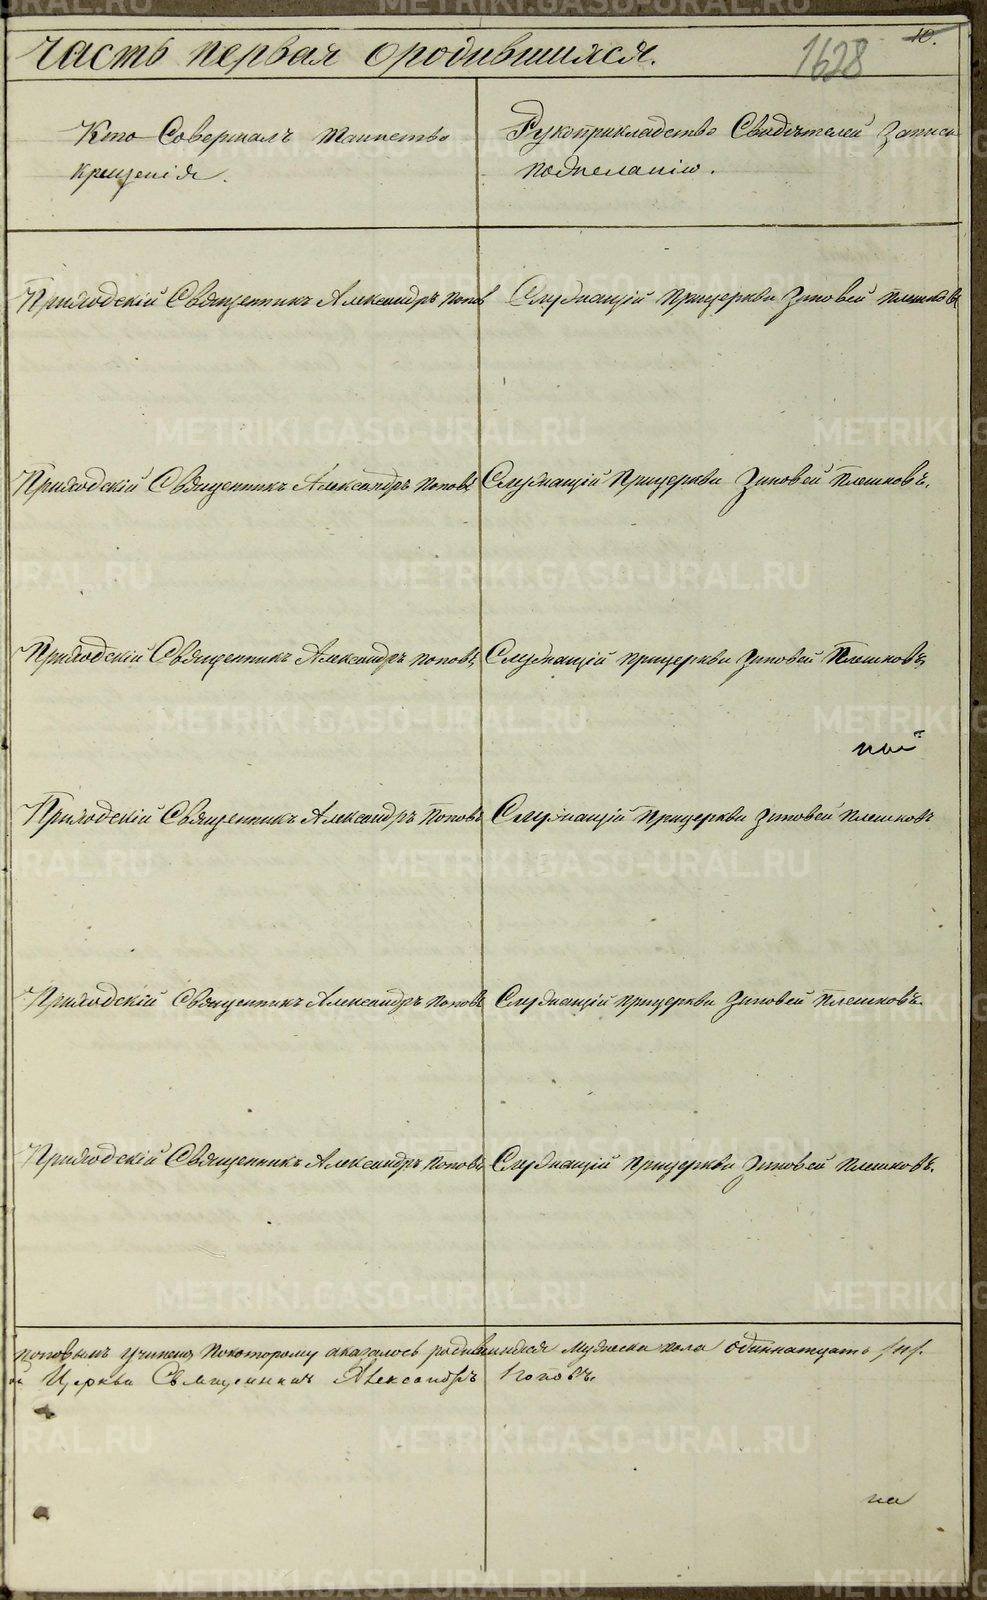 Часть первая ородившихся.
1628
10.
Кто Совершалъ таинство
крещенія.
Рукоприкладство Свидѣтелей Записи
пожеланію.
Приходскій Священникъ Александръ Попов
Служащій прицеркви Зиновей плешковъ
Приходскій Священникъ Александръ Поповъ
Служащій Прицеркви Зиновей Плешковъ.
Приходскій Священникъ Александръ Поповъ
Служащій прицеркви Зиновей Плешковъ
Приходскій Священникъ Александръ Поповъ
Служащій прицеркви Зиновей плешковъ
Приходскій Священникъ Александръ Поповъ
Служащій прицеркви Зиновей Плешковъ.
Приходскій Священникъ Александръ Поповъ
Служащій прицеркви Зиновей плешковъ.
поповымъ учинена покоторому оказалось родившихся мужеска пола одиннатцать
Церкви Священникъ Александръ Поповъ.
на
METRIKI.GASO-URAL.RU